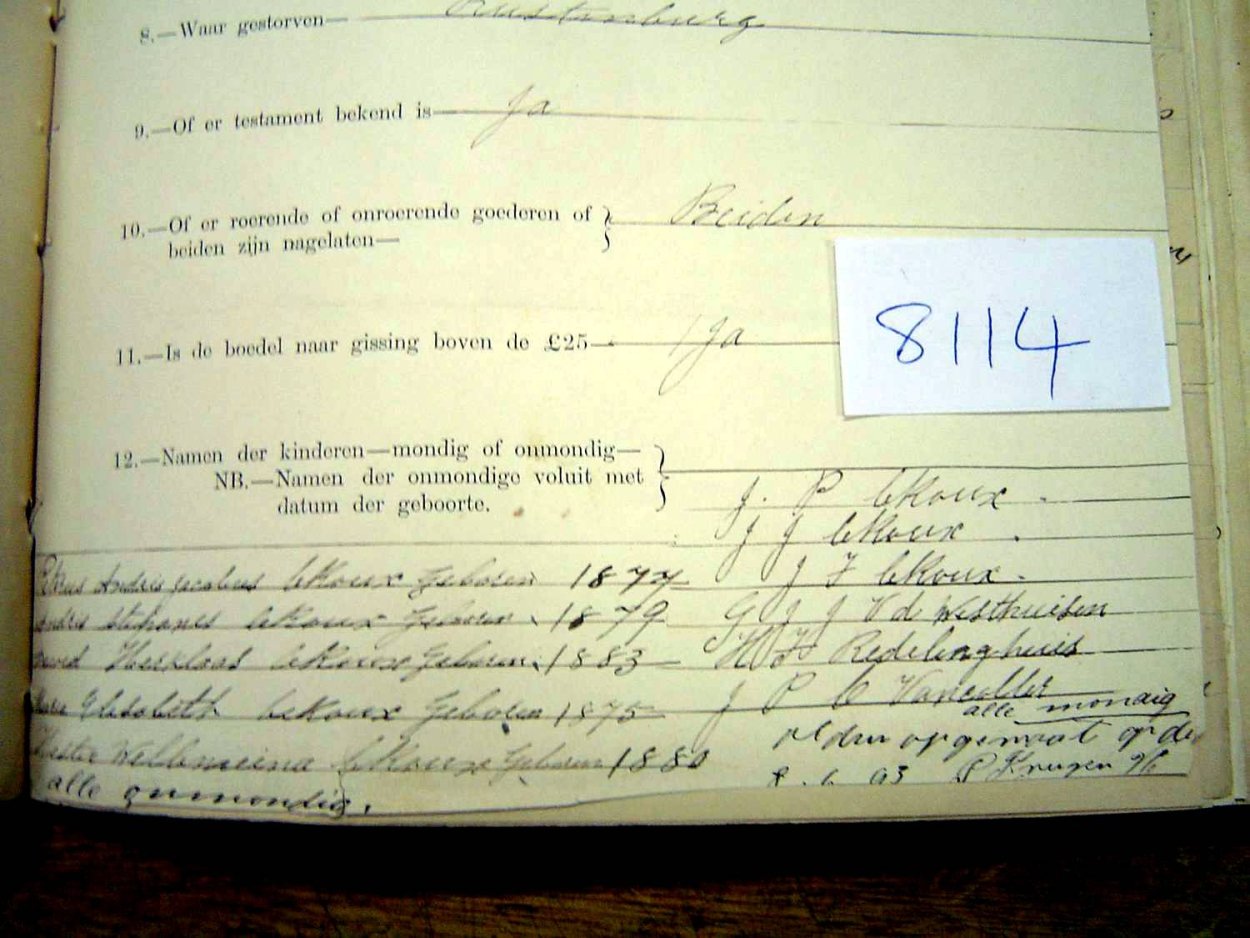 8.—Waar gestorven— Rustenburg
9.—Of er testament bekend is— Ja
10.—Of er roerende of onroerende goederen of
beiden zijn nagelaten— Beiden
11.—Is de boedel naar gissing boven de £25— Ja
8114
12.—Namen der kinderen—mondig of onmondig—
NB.—Namen der onmondige voluit met
datum der geboorte.
J. P leRoux
J J leRoux
J F leRoux
G J J Vd Westhuisen
H F Redelinghuis
J P C
alle mondig
Andries Jacobus leRoux Geboren 1877
Stephanes leRoux Geboren 1879
leRoux Geboren 1883
Elesabeth leRoux Geboren 1875
Hester leRoux Geboren 1880
alle onmondig.
93 P Kruger